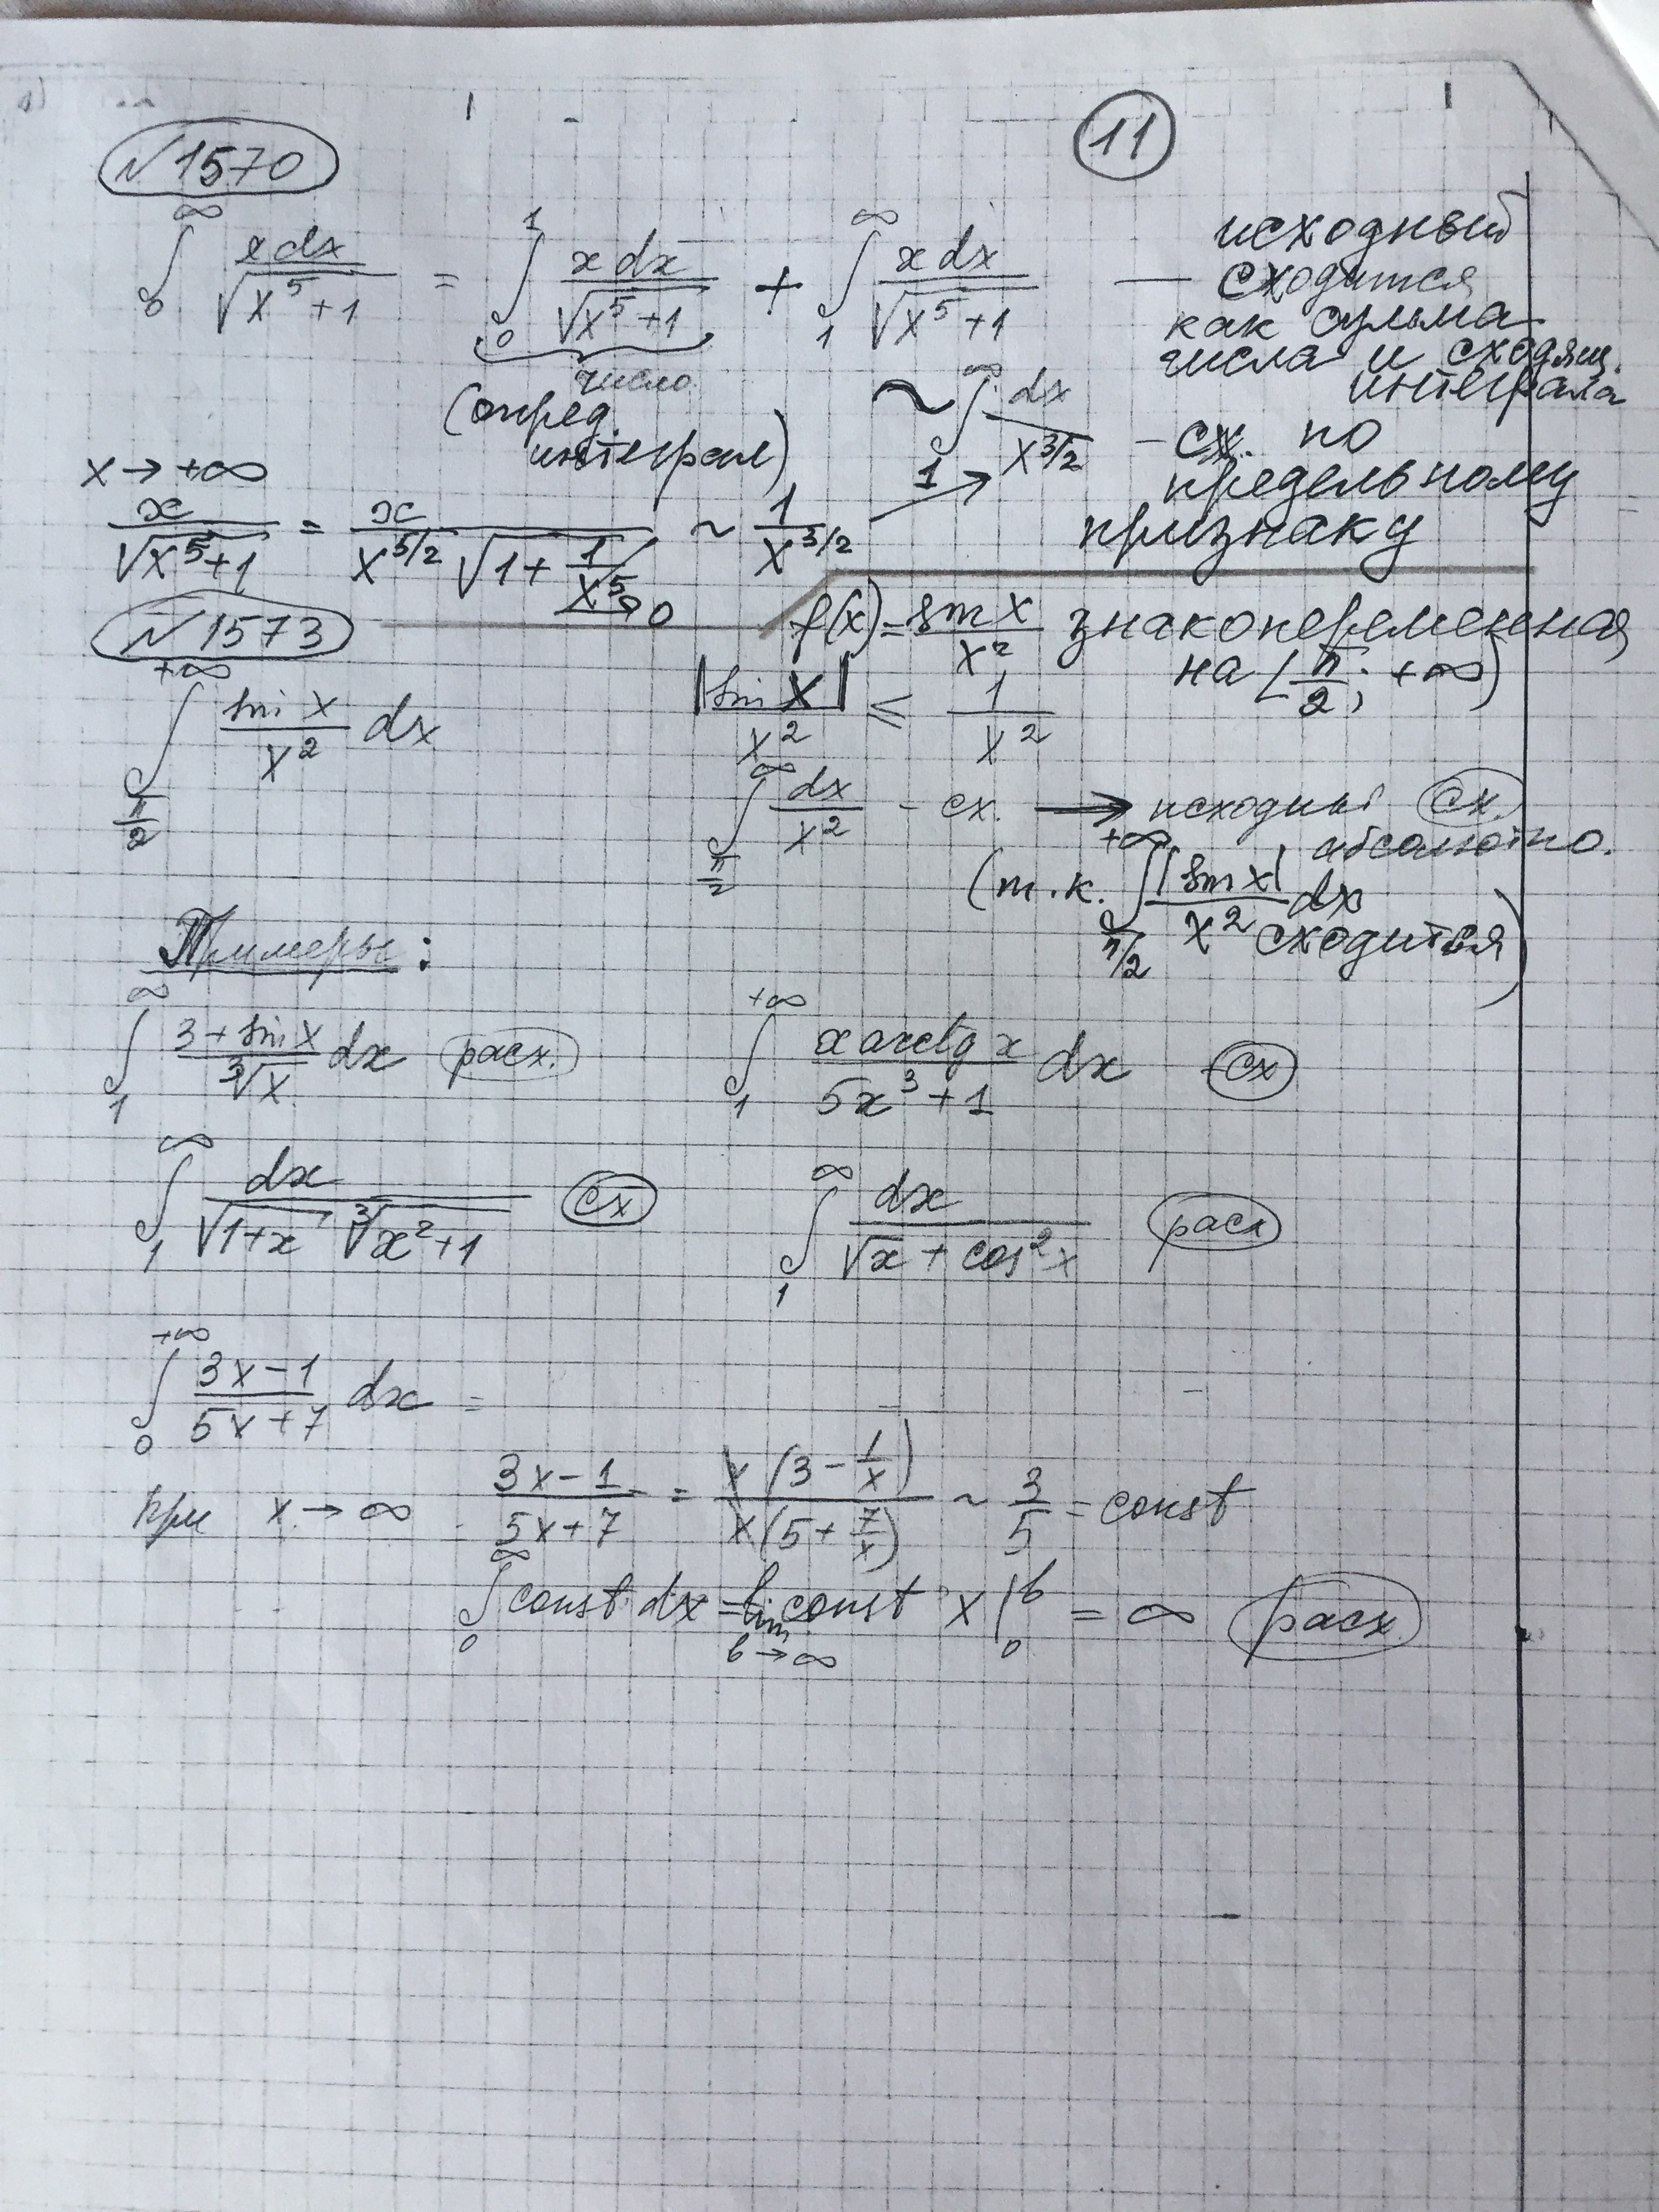 11
N 1570
∫_0^∞ x dx / √(x^5+1) = ∫_0^1 x dx / √(x^5+1) + ∫_1^∞ x dx / √(x^5+1) — исходный
сходится
как сумма
числа и сходящ.
интеграла
число
(опред.
интеграл)
~ ∫_1^∞ dx / x^{3/2} – сх. по
предельному
признаку
x → +∞
x / √(x^5+1) = x / (x^{5/2} √(1 + 1/x^5)) ~ 1 / x^{3/2}
→ 0
N 1573
∫_{π/2}^{+∞} sin x / x^2 dx
f(x) = sin x / x^2 знакопеременная
на [π/2; +∞)
|sin x| / x^2 ≤ 1 / x^2
∫_{π/2}^∞ dx / x^2 – сх. → исходный сх.
абсолютно.
(т.к. ∫_{π/2}^{+∞} |sin x| / x^2 dx
сходится)
Примеры:
∫_1^∞ (3 + sin x) / ∛x dx расх.
∫_1^{+∞} x arctg x / (5x^3 + 1) dx сх
∫_1^∞ dx / (√(1+x) ∛(x^2+1)) сх
∫_1^∞ dx / (√x + cos^2 x) расх
∫_0^{+∞} (3x – 1) / (5x + 7) dx =
при x → ∞ (3x – 1) / (5x + 7) = x(3 – 1/x) / x(5 + 7/x) ~ 3/5 = const
∫_0^∞ const dx = lim_{b→∞} const x |_0^b = ∞ расх.